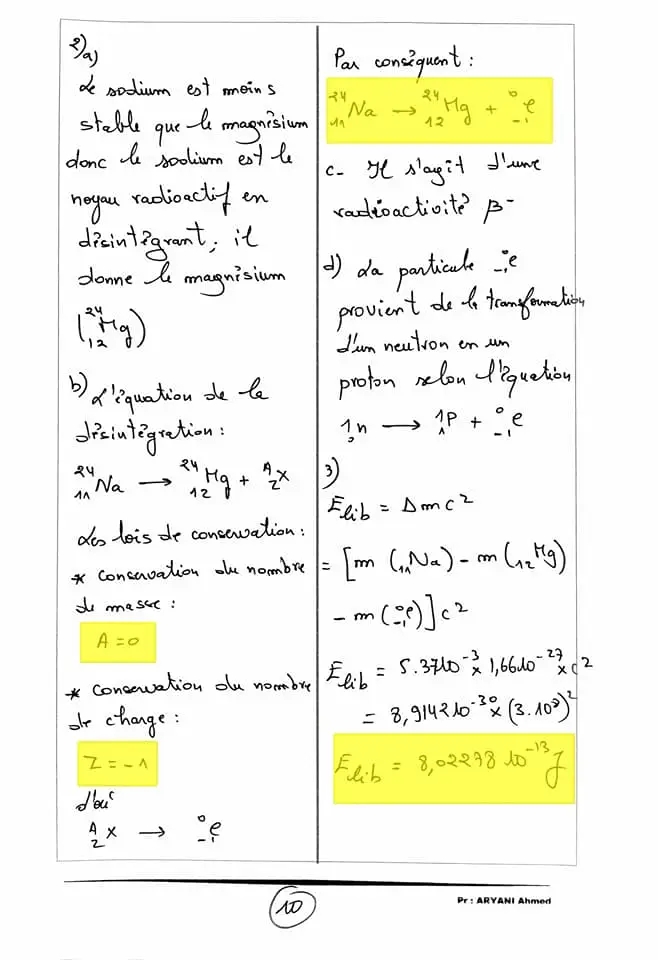 2)a)
Le sodium est moins
stable que le magnésium
donc le sodium est le
noyau radioactif en
désintégrant, il
donne le magnésium
(²⁴₁₂Mg)
b) L'équation de la
désintégration :
²⁴₁₁Na → ²⁴₁₂Mg + ᴬ_Z X
Les lois de conservation :
* conservation du nombre
de masse :
A = 0
* conservation du nombre
de charge :
Z = -1
d'où
ᴬ_Z X → ⁰₋₁e
Par conséquent :
²⁴₁₁Na → ²⁴₁₂Mg + ⁰₋₁e
c- Il s'agit d'une
radioactivité β⁻
d) La particule ⁰₋₁e
provient de la transformation
d'un neutron en un
proton selon l'équation
¹₀n → ¹₁P + ⁰₋₁e
3)
Elib = Δmc²
= [m(₁₁Na) - m(₁₂Mg)
- m(⁰₋₁e)]c²
Elib = 5.37 10⁻³ × 1,66 10⁻²⁷ × c²
= 8,9142 10⁻³⁰ × (3.10⁸)²
Elib = 8,02278 10⁻¹³ J
10
Pr : ARYANI Ahmed